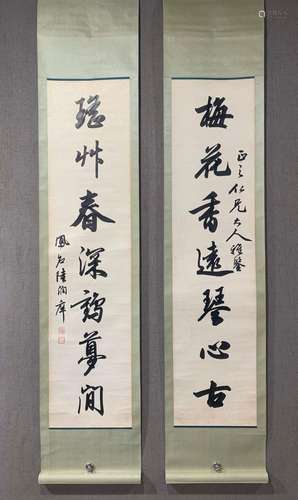 梅花香遠琴心古
正之仁兄大人雅鑒
瑤艸春深鶴夢閒
鳳石陸潤庠